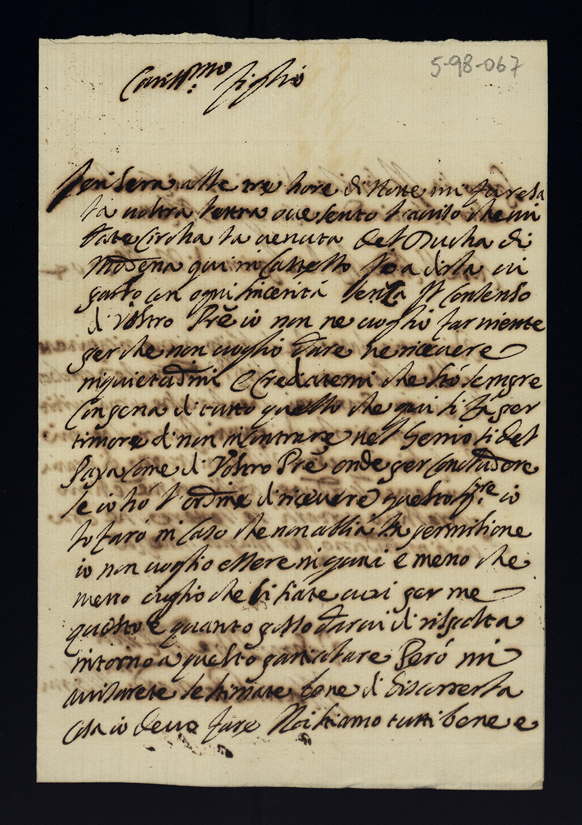 5-98-067
Cariss.mo figlio
Ieri sera alle tre hore di Notte mi fu resa
la vostra lettra ove sento l'aviso che mi
fate circha la venuta del Ducha di
Modena qui in Castello Io a dirla vi
parlo con ogni sincerità senza il consenso
di Vostro Prê io non ne voglio far niente
per che non voglio dare ne ricevere
inquietudini e credatemi che stó sempre
con pena di tutto quello che qui si fà per
timore di non incontrare nel Genio si del
Papa come di Vostro Prê onde per concludere
se io hó l'ordine di ricevere questo Sig.re io
lo faró in caso che non abbia la permisione
io non voglio essere in guai e meno che
meno voglio che vi siate voi per me
questo è quanto posso darvi di risposta
intorno a questo particulare Peró mi
avisarete se stimate bene di discorrerla
cosa io devo fare Noi stiamo tutti bene e